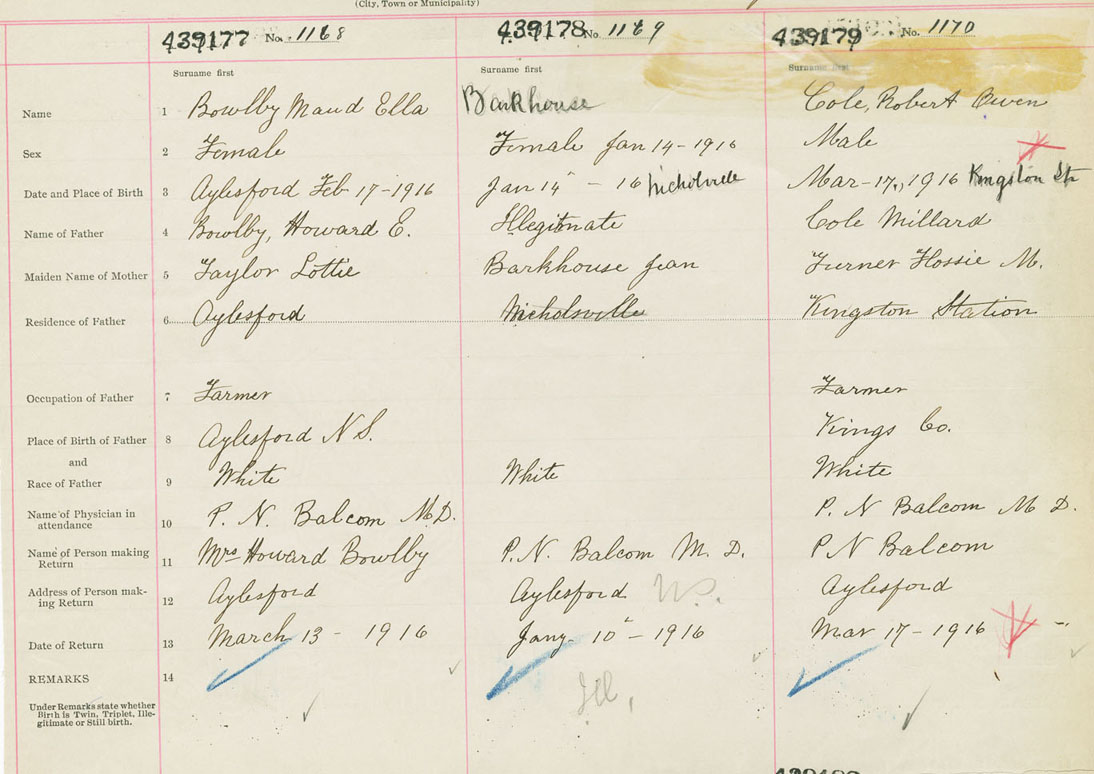 (City, Town or Municipality)
439177 No. 1168 439178 No. 1169 439179 No. 1170
Surname first Surname first Surname first
Name 1 Bowlby Maud Ella Barkhouse Cole, Robert Owen
Sex 2 Female Female Jan 14-1916 Male
Date and Place of Birth 3 Aylesford Feb 17-1916 Jan 14" - 16 Nicholville Mar-17, 1916 Kingston St
Name of Father 4 Bowlby, Howard E. Illegitnate Cole Millard
Maiden Name of Mother 5 Taylor Lottie Barkhouse Jean Turner Flossie M.
Residence of Father 6 Aylesford Nicholsville Kingston Station
Occupation of Father 7 Farmer Farmer
Place of Birth of Father 8 Aylesford N S. Kings Co.
and
Race of Father 9 White White White
Name of Physician in
attendance 10 P. N. Balcom M.D. P. N Balcom M D.
Name of Person making
Return 11 Mrs Howard Bowlby P.N. Balcom M. D. P N Balcom
Address of Person mak-
ing Return 12 Aylesford Aylesford N.S. Aylesford
Date of Return 13 March 13 - 1916 Jany- 10" - 1916 Mar 17 - 1916
REMARKS 14
Under Remarks state whether
Birth is Twin, Triplet, Ille-
gitimate or Still birth.
Ill,